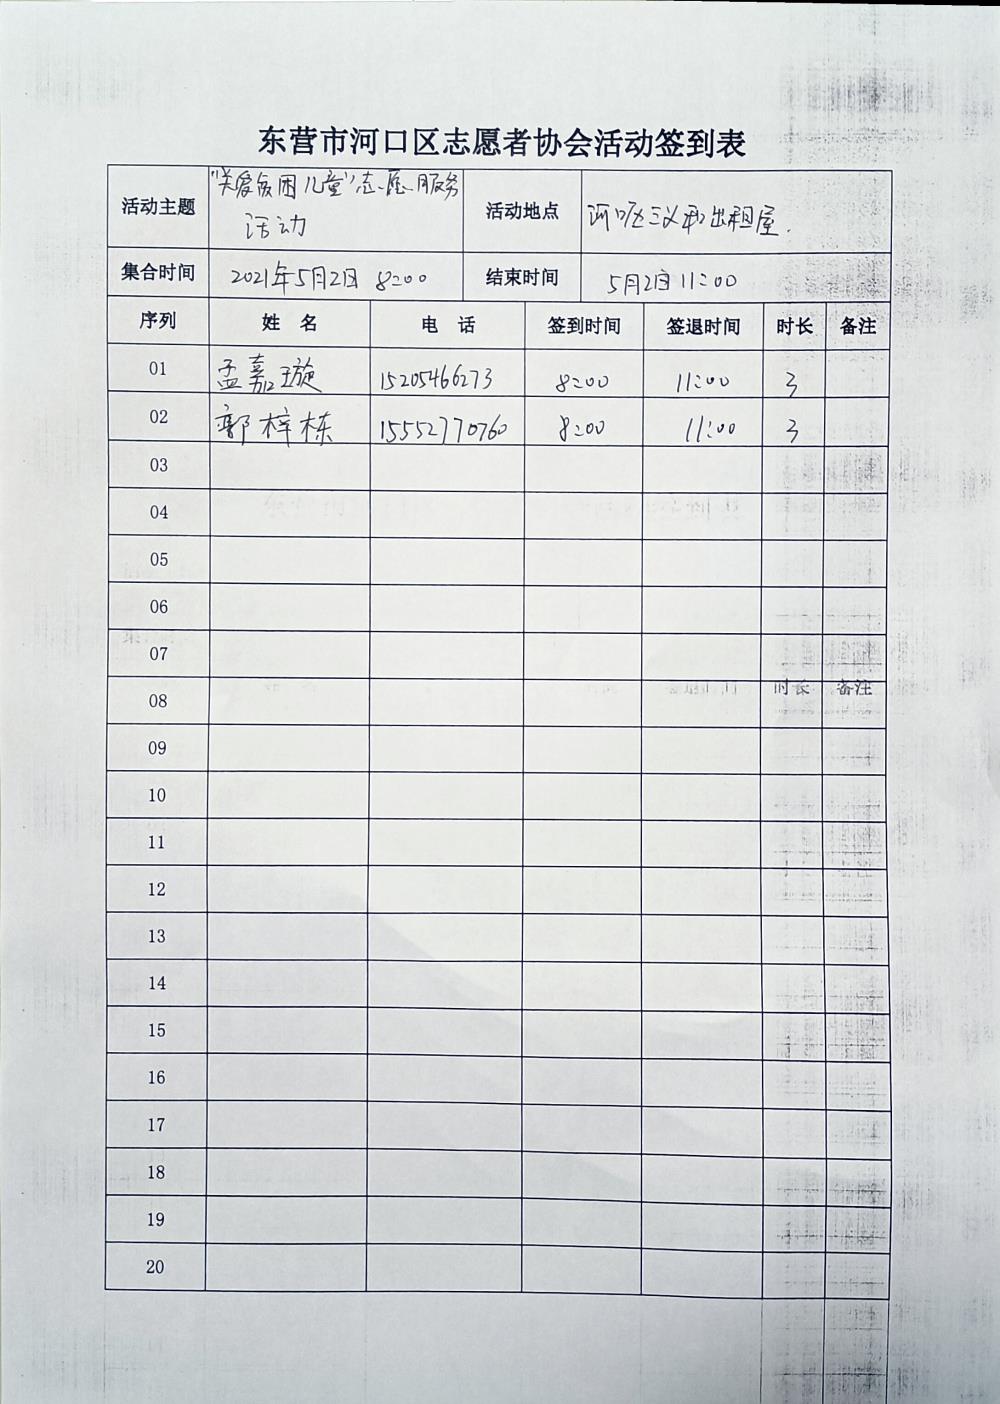 东营市河口区志愿者协会活动签到表
活动主题 "关爱贫困儿童"志愿服务 活动地点 河口区三义和出租屋.
活动
集合时间 2021年5月2日 8:00 结束时间 5月2日 11:00
序列 姓 名 电 话 签到时间 签退时间 时长 备注
01 孟嘉璇 15205466273 8:00 11:00 3
02 郭梓栋 15552770760 8:00 11:00 3
03
04
05
06
07
08 时长 备注
09
10
11
12
13
14
15
16
17
18
19
20